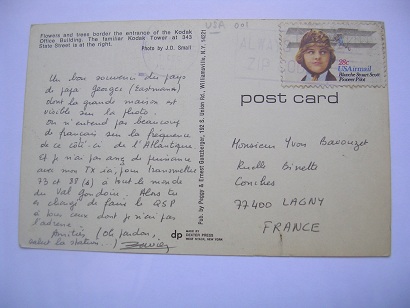 Flowers and trees border the entrance of the Kodak
Office Building. The familiar Kodak Tower at 343
State Street is at the right.
Photo by J.D. Small
Un bon souvenir du pays
de papa Georges (Eastmann)
dont la grande maison est
visible sur la photo.
On n'entend pas beaucoup
de français sur la fréquence
de ce côté-ci de l'Atlantique
et je n'ai pas de puissance
avec mon TX ici, pour transmettre
73 et 88 (4) à tout le monde
du Val Gondoire. Alors tu
es chargé de faire le QSP
à tous ceux dont je n'ai pas
l'adresse.
Amitiés (Oh pardon,
salut la station...)
Pub. by Peggy & Ernest Gamberger, 102 S. Union Rd., Williamsville, N.Y. 14221
dp
MADE BY
DEXTER PRESS
WEST NYACK, NEW YORK
USA
28c
USAirmail
Blanche Stuart Scott
Pioneer Pilot
post card
Monsieur Yvon
Ruelle Binette
Conches
77400 LAGNY
FRANCE